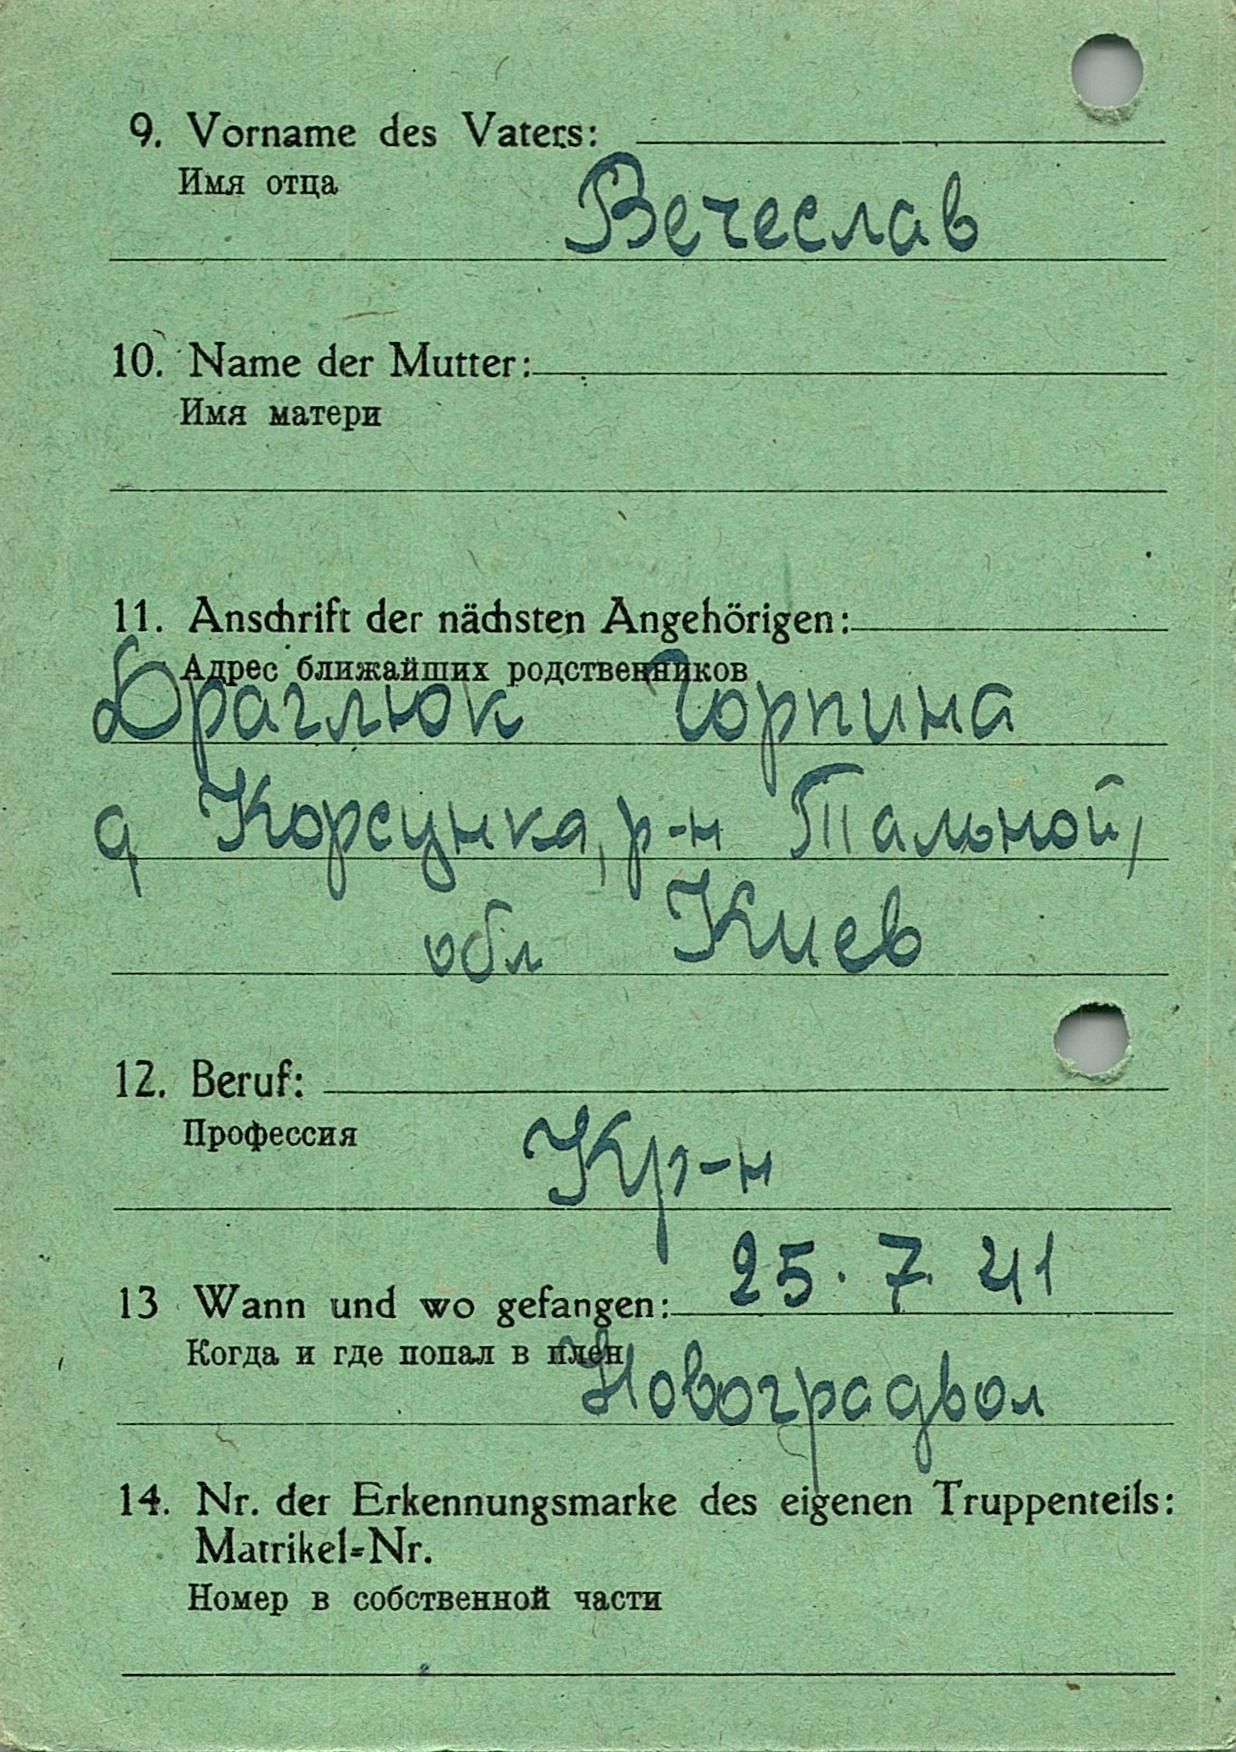 9. Vorname des Vaters:
Имя отца
Вечеслав
10. Name der Mutter:
Имя матери
11. Anschrift der nächsten Angehörigen:
Адрес ближайших родственников
Драглюк Горпина
д Корсунка, р-н Тальной,
обл Киев
12. Beruf:
Профессия
Кр-н
25. 7. 41
13 Wann und wo gefangen:
Когда и где попал в плен
Новоградвол
14. Nr. der Erkennungsmarke des eigenen Truppenteils:
Matrikel=Nr.
Номер в собственной части